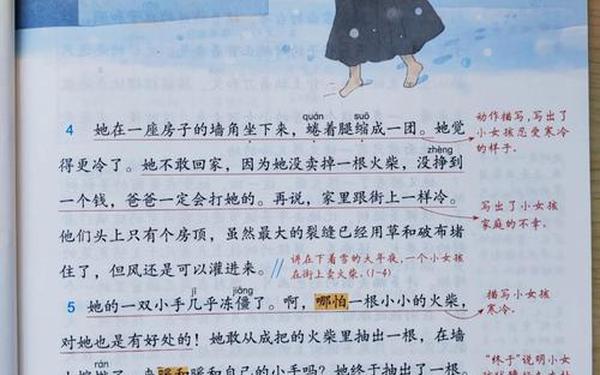 quán suō
4 她在一座房子的墙角坐下来，蜷着腿缩成一团。她觉
zhèng
得更冷了。她不敢回家，因为她没卖掉一根火柴，没挣到
一个钱，爸爸一定会打她的。再说，家里跟街上一样冷。
他们头上只有个房顶，虽然最大的裂缝已经用草和破布堵
住了，但风还是可以灌进来。//
讲在下着雪的大年夜，一个小女孩
在街上卖火柴。(1-4)
jī jiāng
5 她的一双小手几乎冻僵了。啊，哪怕一根小小的火柴，
对她也是有好处的！她敢从成把的火柴里抽出一根，在墙
rán
暖和暖和自己的小手吗？她终于抽出了一根。
动作描写，写出了
小女孩忍受寒冷
的样子。
写出了小女孩
家庭的不幸。
描写小女孩
寒冷。
"终于"说明小女